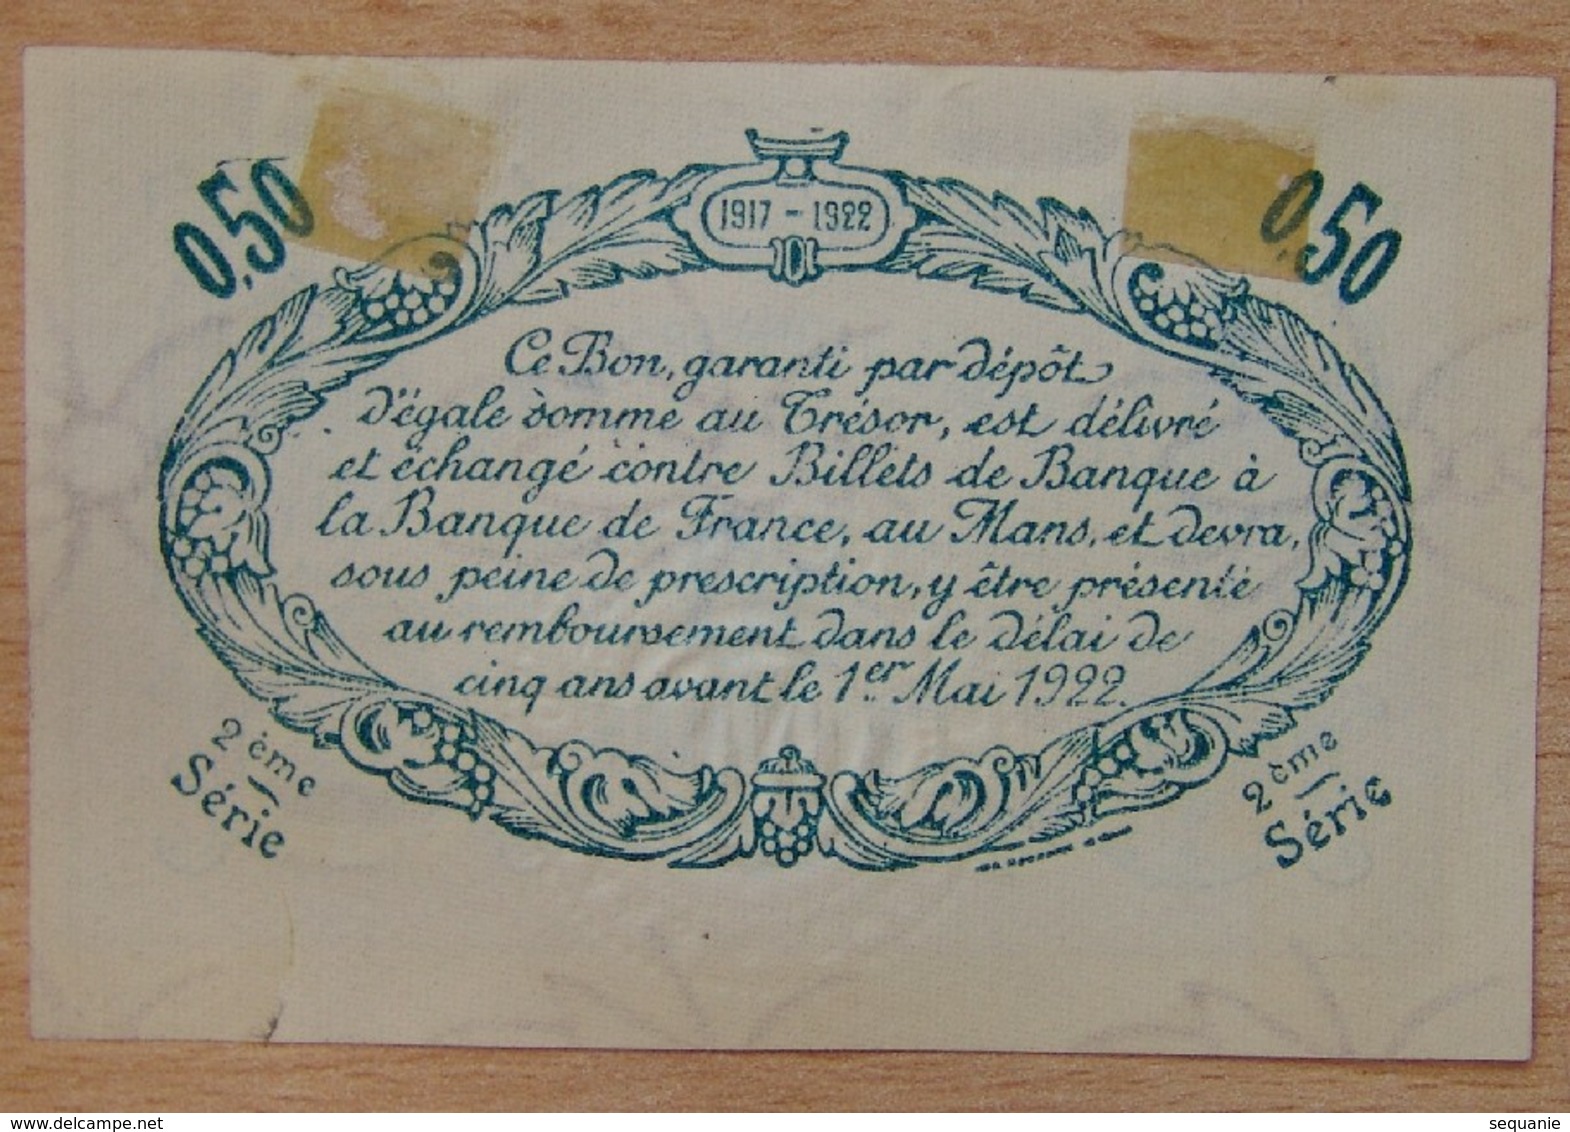 1917 - 1922
0,50
0,50
Ce Bon, garanti par dépôt
d'égale somme au Trésor, est délivré
et échangé contre Billets de Banque à
la Banque de France, au Mans, et devra,
sous peine de prescription, y être présenté
au remboursement dans le délai de
cinq ans avant le 1er Mai 1922.
2ème
Série
2ème
Série
delcampe.net
sequanie